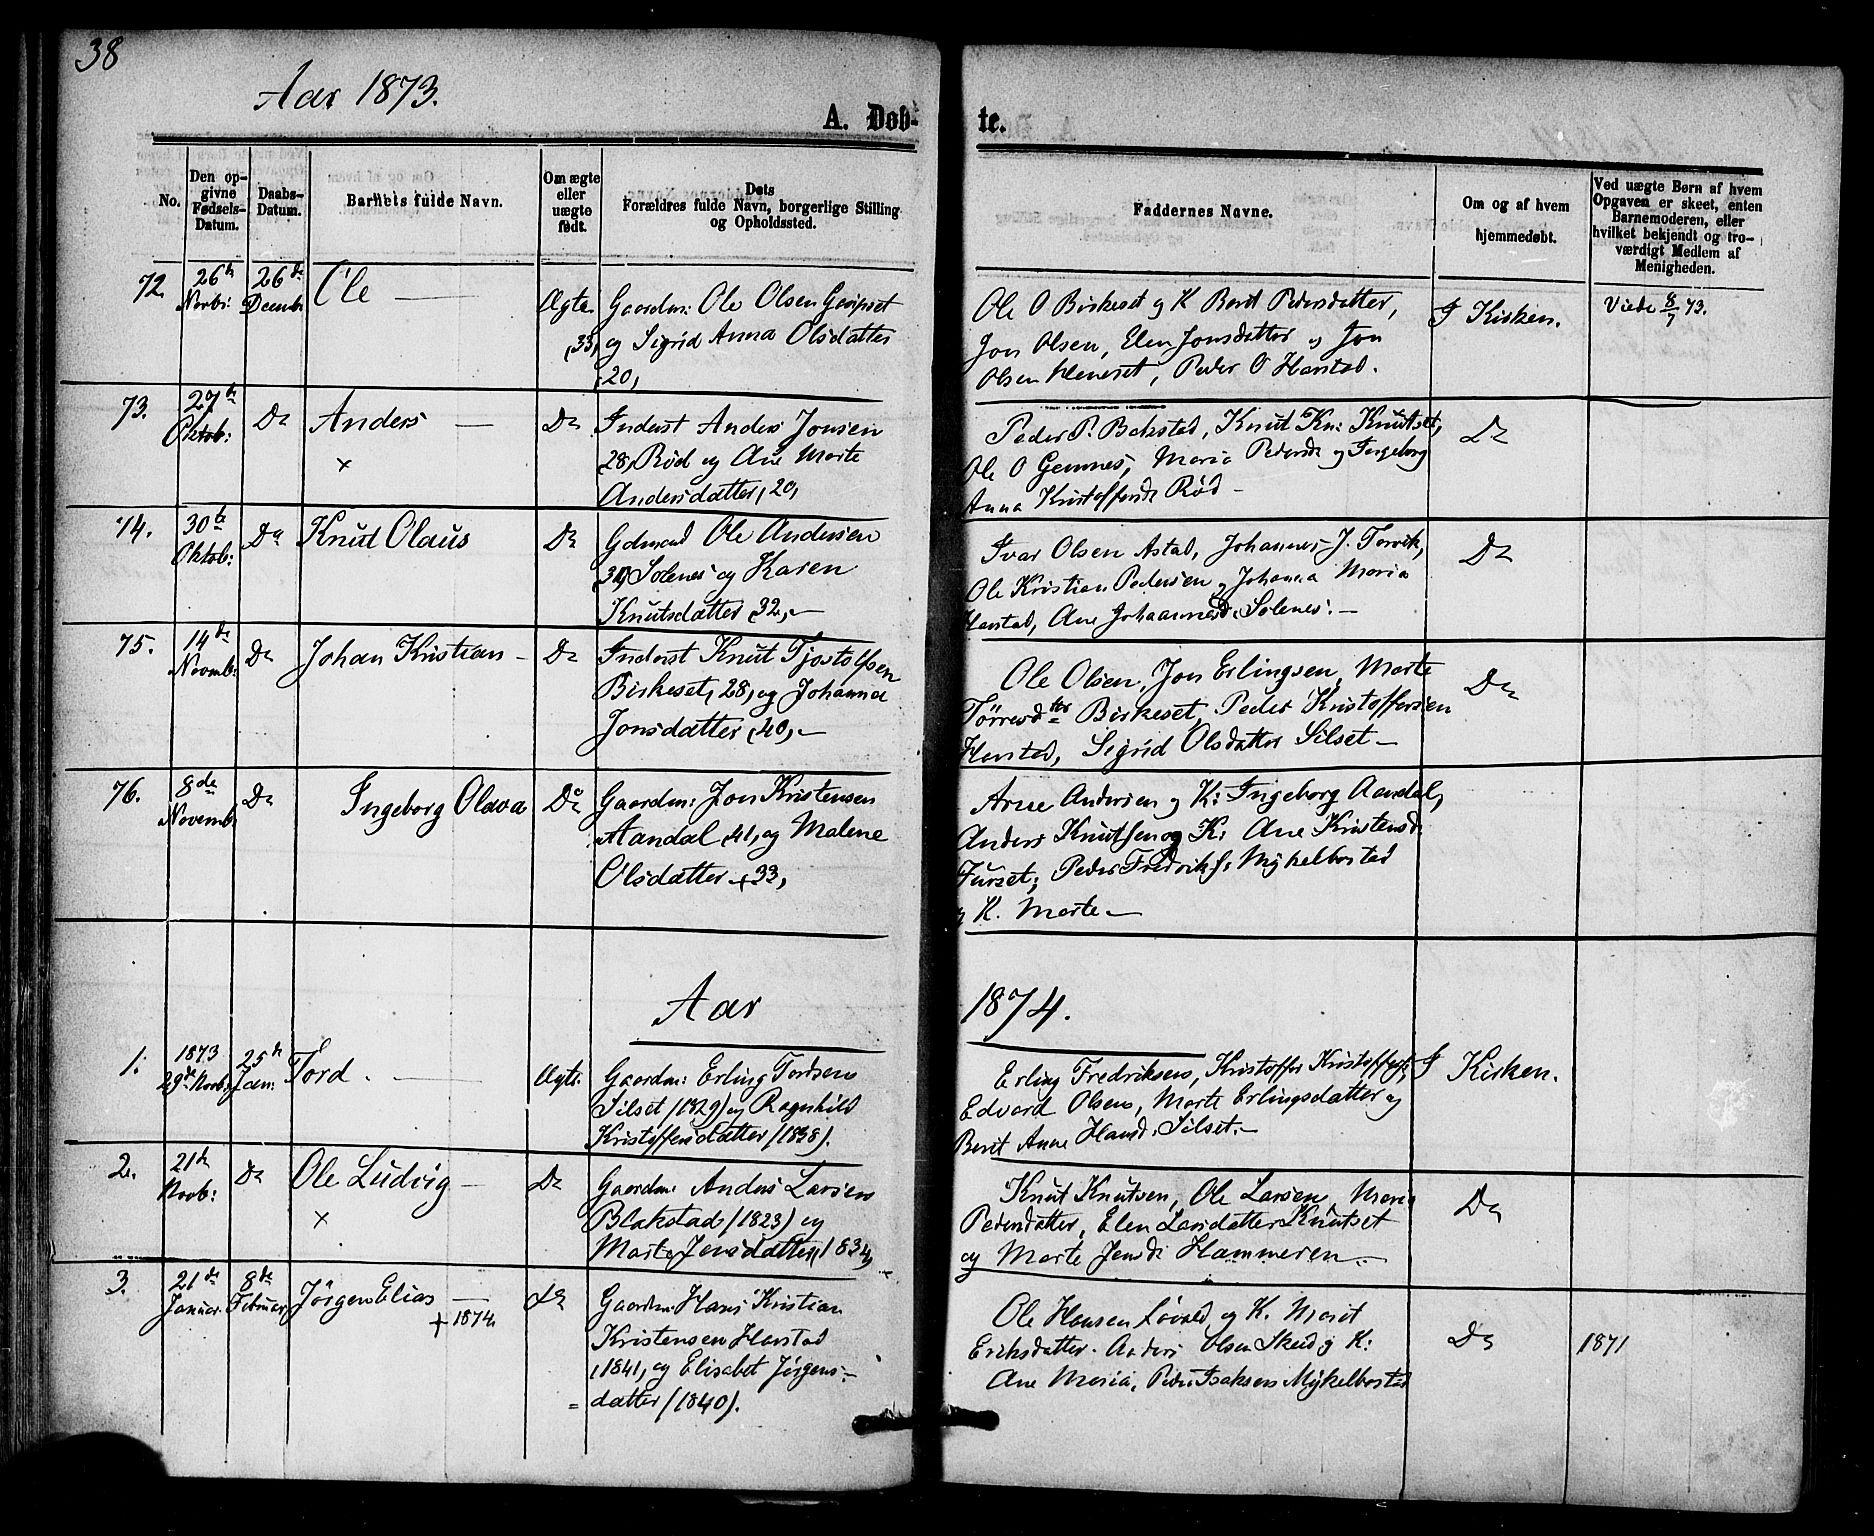 38
Aar 1873.
A. Døb-
te.
No.
Den op-
givne
Fødsels-
Datum.
Daabs-
Datum.
Barnets fulde Navn.
Om ægte
eller
uægte
født.
Dets
Forældres fulde Navn, borgerlige Stilling
og Opholdssted.
Faddernes Navne.
Om og af hvem
hjemmedøbt.
Ved uægte Børn af hvem
Opgaven er skeet, enten
Barnemoderen, eller
hvilket bekjendt og tro-
værdigt Medlem af
Menigheden.
72.
26de
Novbr:
26de
Decemb:
Ole
Ægte
Gaardm: Ole Olsen
(33) og Sigrid Anna Olsdatter
(20)
Ole O Birkeset og K Berit Pedersdatter,
Jon Olsen, Elen Jonsdatter og Jon
Olsen Heneset, Peder O Harstad.
I Kirken.
Viede 8/7 73.
73.
27de
Oktob:
Do
Anders
x
Do
Inderst Anders Jonsen
28, Rød og Ane Marte
Andersdatter, 20,
Peder P. Bakstad, Knut Kn: Knutset,
Ole O Gemnes, Maria Pedersd: og Ingeborg
Anna Kristoffersd: Rød
Do
74.
30te
Oktob:
Do
Knut Olaus
Do
Gdmand Ole Andersen
Solenes og Karen
Knutsdatter (32,
Ivar Olsen Astad, Johannes J. Torvik,
Ole Kristian Pedersen og Johanna Maria
Harstad, Ane Johannesd: Solenes.
Do
75.
14de
Novemb:
Do
Johan Kristian
Do
Inderst Knut Tjostolfsen
Birkeset, 28, og Johanna
Jonsdatter (40,
Ole Olsen, Jon Erlingsen, Marte
Tørresdter Birkeset, Peder Kristoffersen
Harstad, Sigrid Olsdatter Silset
Do
76.
8de
Novemb:
Do
Ingeborg Olava
Do
Gaardm: Jon Kristensen
Aandal (41, og Malene
Olsdatter (33,
Arne Andersen og K: Ingeborg Aandal,
Anders Knutsen og K: Ane Kristensd:
Furset; Peder Fredriks: Mykelbostad
og K. Marte
Aar
1874.
1.
1873
29de Novb:
25de
Jan:
Tord.
Ægte
Gaardm: Erling Tordsen
Silset (1829) og Ragnhild
Kristoffersdatter (1838).
Erling Fredriksen, Kristoffer Kristoffers:
Edvard Olsen, Marte Erlingsdatter og
Berit Anne Hansd. Silset.
I Kirken.
2.
21de
Novb:
Do
Ole Ludvig
x
Do
Gaardm: Anders Larsen
Blakstad (1823) og
Marte Jensdatter (1834,
Knut Knutsen, Ole Larsen, Maria
Pedersdatter, Elen Larsdatter Knutset
og Marte Jensd: Hammeren
Do
3.
21de
Januar
8de
Februar
Jørgen Elias
+ 1874.
Do
Gaardm: Hans Kristian
Kristensen Harstad
(1841, og Elisabet Jørgens-
datter (1840).
Ole Hansen Løvold og K. Marit
Eriksdatter. Anders Olsen Skeid og K:
Ane Maria. Peder Isaksen Mykelbostad
Do
1871